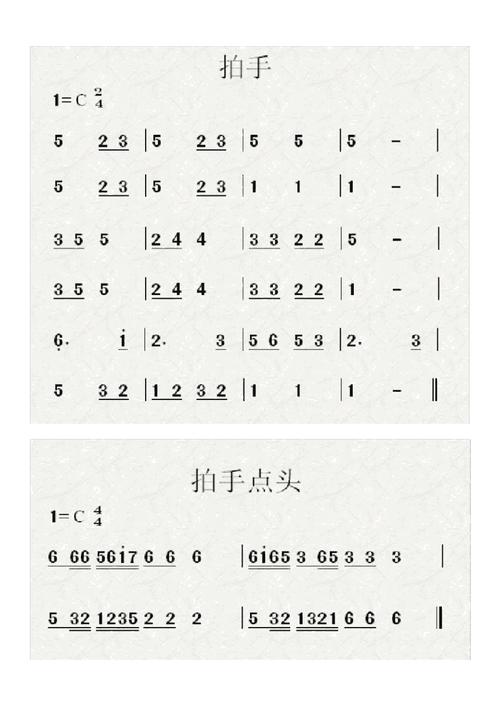 拍手
1=C 2/4
5 2 3 | 5 2 3 | 5 5 | 5 - |
5 2 3 | 5 2 3 | 1 1 | 1 - |
3 5 5 | 2 4 4 | 3 3 2 2 | 5 - |
3 5 5 | 2 4 4 | 3 3 2 2 | 1 - |
6̣· i̇ | 2· 3 | 5 6 5 3 | 2· 3 |
5 3 2 | 1 2 3 2 | 1 1 | 1 - ‖
拍手点头
1=C 4/4
6 66 561̇7 6 6 6 | 61̇65 3 65 3 3 3 |
5 32 1235 2 2 2 | 5 32 1321 6 6 6 ‖